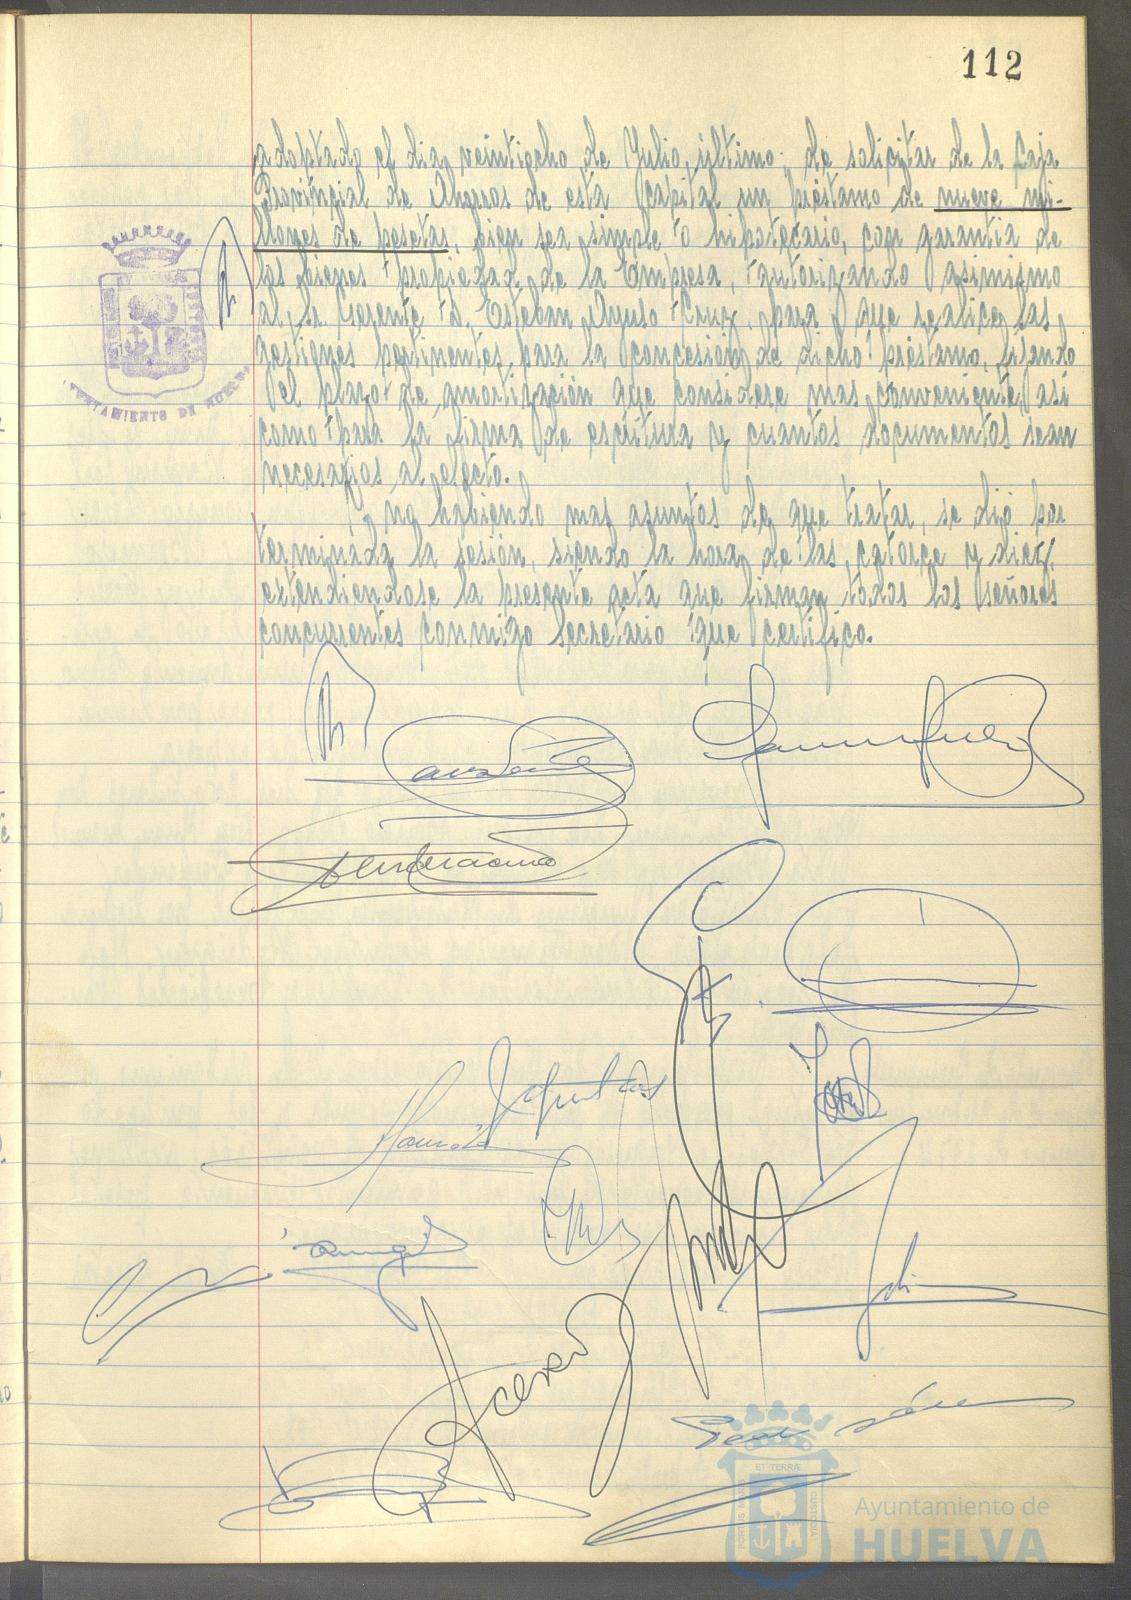 112
adoptado el dia veintiocho de Julio último, de solicitar de la Caja
Provincial de Ahorros de esta Capital un préstamo de nueve mi-
llones de pesetas, bien sea simple o hipotecario, con garantia de
los bienes propiedad de la Empresa, autorizando asimismo
al Sr. Gerente D. Esteban Cruz, para que realice las
gestiones pertinentes para la concesión de dicho préstamo, fijando
el plazo de amortización que considere mas conveniente, asi
como para la firma de escritura y cuantos documentos sean
necesarios al efecto.
Y no habiendo mas asuntos de que tratar, se dió por
terminada la sesión, siendo la hora de las catorce y diez,
extendiendose la presente acta que firman todos los señores
concurrentes conmigo Secretario que certifico.
AYUNTAMIENTO DE HUELVA
Acevedo
ET TERRÆ
PORTUS MARIS
CUSTODIA
Ayuntamiento de
HUELVA